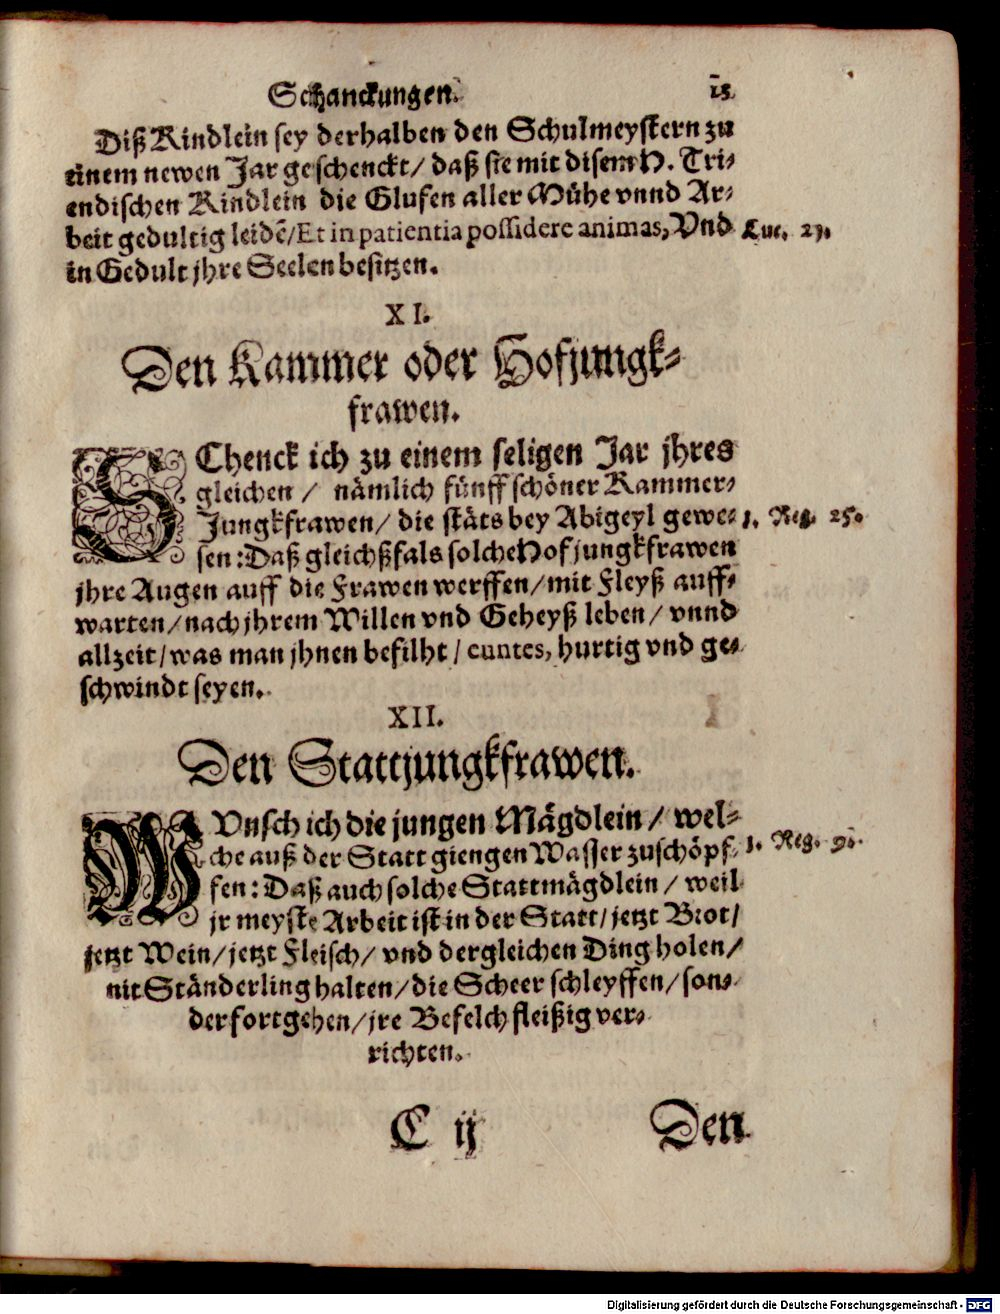 Schanckungen. 15
Diß Kindlein sey derhalben den Schulmeystern zu
einem newen Jar geschenckt/ daß sie mit disem H. Tri-
endischen Kindlein die Glufen aller Mühe vnnd Ar-
beit gedultig leidē/Et in patientia possidere animas, Vnd Luc. 21.
in Gedult jhre Seelen besitzen.
XI.
Den Kammer oder Hofjungk-
frawen.
SChenck ich zu einem seligen Jar jhres
gleichen / nämlich fünff schöner Kammer-
Jungkfrawen/ die stäts bey Abigeyl gewe- 1. Reg. 25.
sen: Daß gleichßfals solche Hofjungkfrawen
jhre Augen auff die Frawen werffen/mit Fleyß auff-
warten/nach jhrem Willen vnd Geheyß leben/ vnnd
allzeit/was man jhnen befilht / euntes, hurtig vnd ge-
schwindt seyen.
XII.
Den Stattjungkfrawen.
WVnsch ich die jungen Mägdlein / wel-
che auß der Statt giengen Wasser zuschöpf- 1. Reg. 9.
fen: Daß auch solche Stattmägdlein / weil
jr meyste Arbeit ist in der Statt/ jetzt Brot/
jetzt Wein/jetzt Fleisch/ vnd dergleichen Ding holen/
nit Ständerling halten/die Scheer schleyffen/son-
der fortgehen/jre Befelch fleißig ver-
richten.
C ij Den
Digitalisierung gefördert durch die Deutsche Forschungsgemeinschaft - DFG